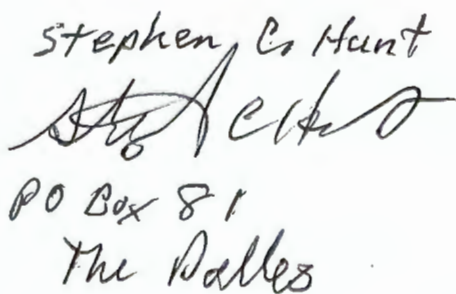 Stephen C. Hunt
PO Box 81
The Dalles